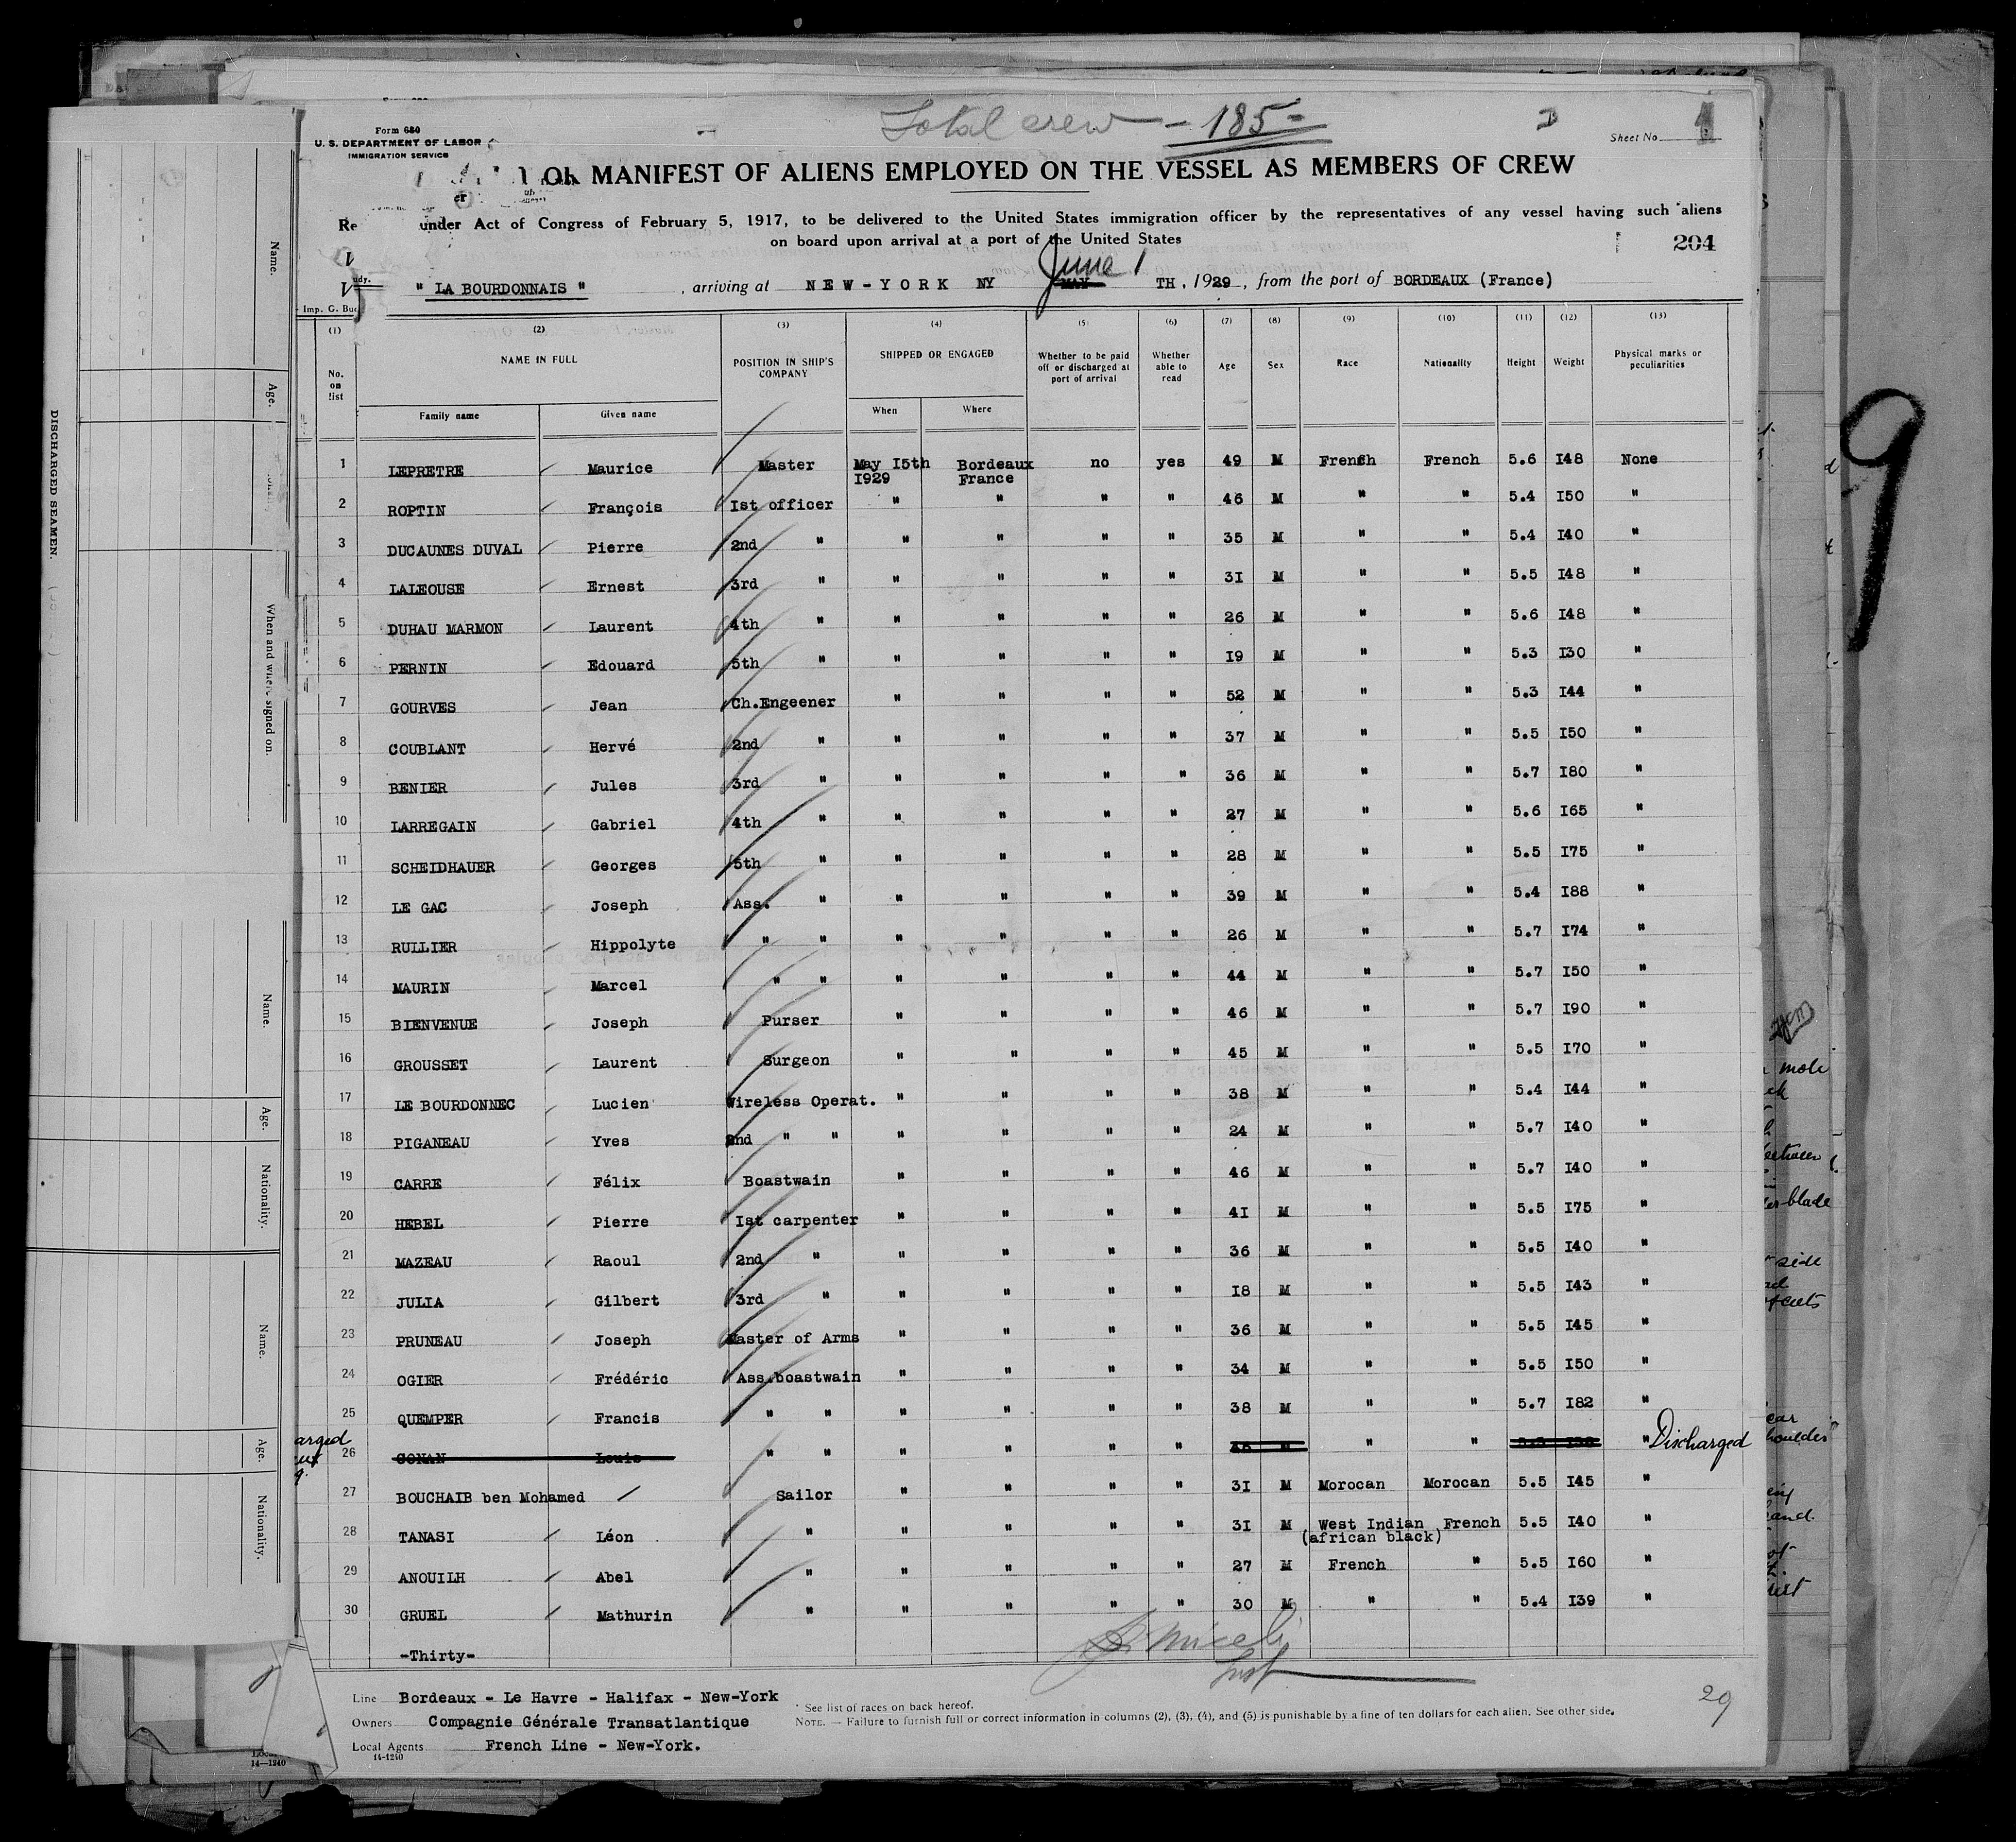 Total crew - 185 -
Form 680
U. S. DEPARTMENT OF LABOR
IMMIGRATION SERVICE
Sheet No. 1
OR MANIFEST OF ALIENS EMPLOYED ON THE VESSEL AS MEMBERS OF CREW
under Act of Congress of February 5, 1917, to be delivered to the United States immigration officer by the representatives of any vessel having such aliens
on board upon arrival at a port of the United States
204
June 1
" LA BOURDONNAIS " , arriving at NEW-YORK NY MAY TH. 1929, from the port of BORDEAUX (France)
Imp. G. Bu
(1) (2) (3) (4) (5) (6) (7) (8) (9) (10) (11) (12) (13)
No. on list NAME IN FULL POSITION IN SHIP'S COMPANY SHIPPED OR ENGAGED Whether to be paid off or discharged at port of arrival Whether able to read Age Sex Race Nationality Height Weight Physical marks or peculiarities
Family name Given name When Where
1 LEPRETRE Maurice Master May I5th I929 Bordeaux France no yes 49 M French French 5.6 I48 None
2 ROPTIN François Ist officer " " " " 46 M " " 5.4 I50 "
3 DUCAUNES DUVAL Pierre 2nd " " " " " 35 M " " 5.4 I40 "
4 LALEOUSE Ernest 3rd " " " " " 3I M " " 5.5 I48 "
5 DUHAU MARMON Laurent 4th " " " " " 26 M " " 5.6 I48 "
6 PERNIN Edouard 5th " " " " " I9 M " " 5.3 I30 "
7 GOURVES Jean Ch.Engeener " " " " 52 M " " 5.3 I44 "
8 COUBLANT Hervé 2nd " " " " " 37 M " " 5.5 I50 "
9 BENIER Jules 3rd " " " " " 36 M " " 5.7 I80 "
10 LARREGAIN Gabriel 4th " " " " " 27 M " " 5.6 I65 "
11 SCHEIDHAUER Georges 5th " " " " " 28 M " " 5.5 I75 "
12 LE GAC Joseph Ass. " " " " " 39 M " " 5.4 I88 "
13 RULLIER Hippolyte " " " " " " 26 M " " 5.7 I74 "
14 MAURIN Marcel " " " " " " 44 M " " 5.7 I50 "
15 BIENVENUE Joseph Purser " " " " 46 M " " 5.7 I90 "
16 GROUSSET Laurent Surgeon " " " " 45 M " " 5.5 I70 "
17 LE BOURDONNEC Lucien Wireless Operat. " " " " 38 M " " 5.4 I44 "
18 PIGANEAU Yves 2nd " " " " " " 24 M " " 5.7 I40 "
19 CARRE Félix Boastwain " " " " 46 M " " 5.7 I40 "
20 HEBEL Pierre Ist carpenter " " " " 4I M " " 5.5 I75 "
21 MAZEAU Raoul 2nd " " " " " 36 M " " 5.5 I40 "
22 JULIA Gilbert 3rd " " " " " I8 M " " 5.5 I43 "
23 PRUNEAU Joseph Master of Arms " " " " 36 M " " 5.5 I45 "
24 OGIER Frédéric Ass.boastwain " " " " 34 M " " 5.5 I50 "
25 QUEMPER Francis " " " " " " 38 M " " 5.7 I82 "
26 CONAN Louis " " " " " " M " " " Discharged
27 BOUCHAIB ben Mohamed Sailor " " " " 3I M Morocan Morocan 5.5 I45 "
28 TANASI Léon " " " " " 3I M West Indian (african black) French 5.5 I40 "
29 ANOUILH Abel " " " " " 27 M French " 5.5 I60 "
30 GRUEL Mathurin " " " " " 30 M " " 5.4 I39 "
-Thirty-
Line Bordeaux - Le Havre - Halifax - New-York
Owners Compagnie Générale Transatlantique
Local Agents French Line - New-York.
14-1240
* See list of races on back hereof.
NOTE. — Failure to furnish full or correct information in columns (2), (3), (4), and (5) is punishable by a fine of ten dollars for each alien. See other side.
29
DISCHARGED SEAMEN.
Name.
Age.
When and where signed on.
Name.
Age.
Nationality.
Name.
Age.
Nationality.
14—1240
9
mole
blade
side